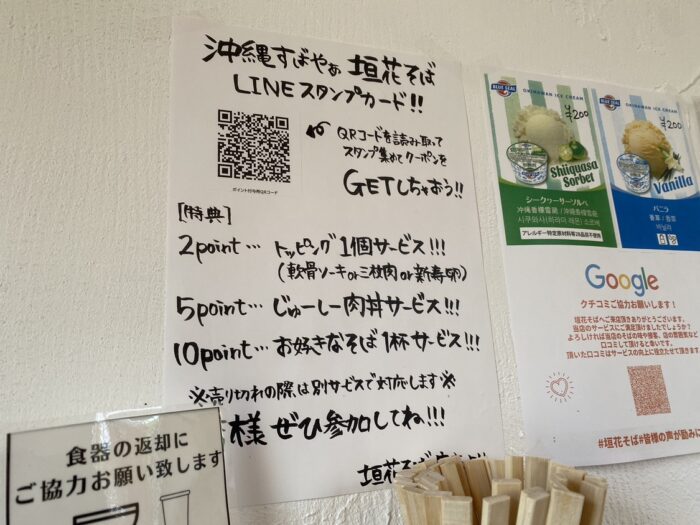 沖縄すばやぁ 垣花そば
LINEスタンプカード!!
QRコードを読み取って
スタンプ集めてクーポンを
GETしちゃおう!!
ポイント付与用QRコード
[特典]
2point… トッピング1個サービス!!!
(軟骨ソーキor三枚肉or新寿卵)
5point… じゅーしー肉丼サービス!!!
10point… お好きなそば1杯サービス!!!
※売り切れの際は別サービスで対応します※
様 ぜひ参加してね!!!
垣花そば
食器の返却に
ご協力お願い致します
BLUE SEAL
OKINAWAN ICE CREAM
¥200
Shiiquasa
Sorbet
シークヮーサーソルベ
アレルギー特定原材料等28品目不使用
BLUE SEAL
OKINAWAN ICE CREAM
¥200
Vanilla
バニラ
香草 / 香草
바닐라
Google
クチコミご協力お願いします!
垣花そばへご来店頂きありがとうございます。
当店のサービスにご満足頂けましたでしょうか?
よろしければ当店のそばの味や接客、店の雰囲気など
口コミして頂けると幸いです。
頂いた口コミはサービスの向上に役立たせて頂きます
#垣花そば#皆様の声が励みに